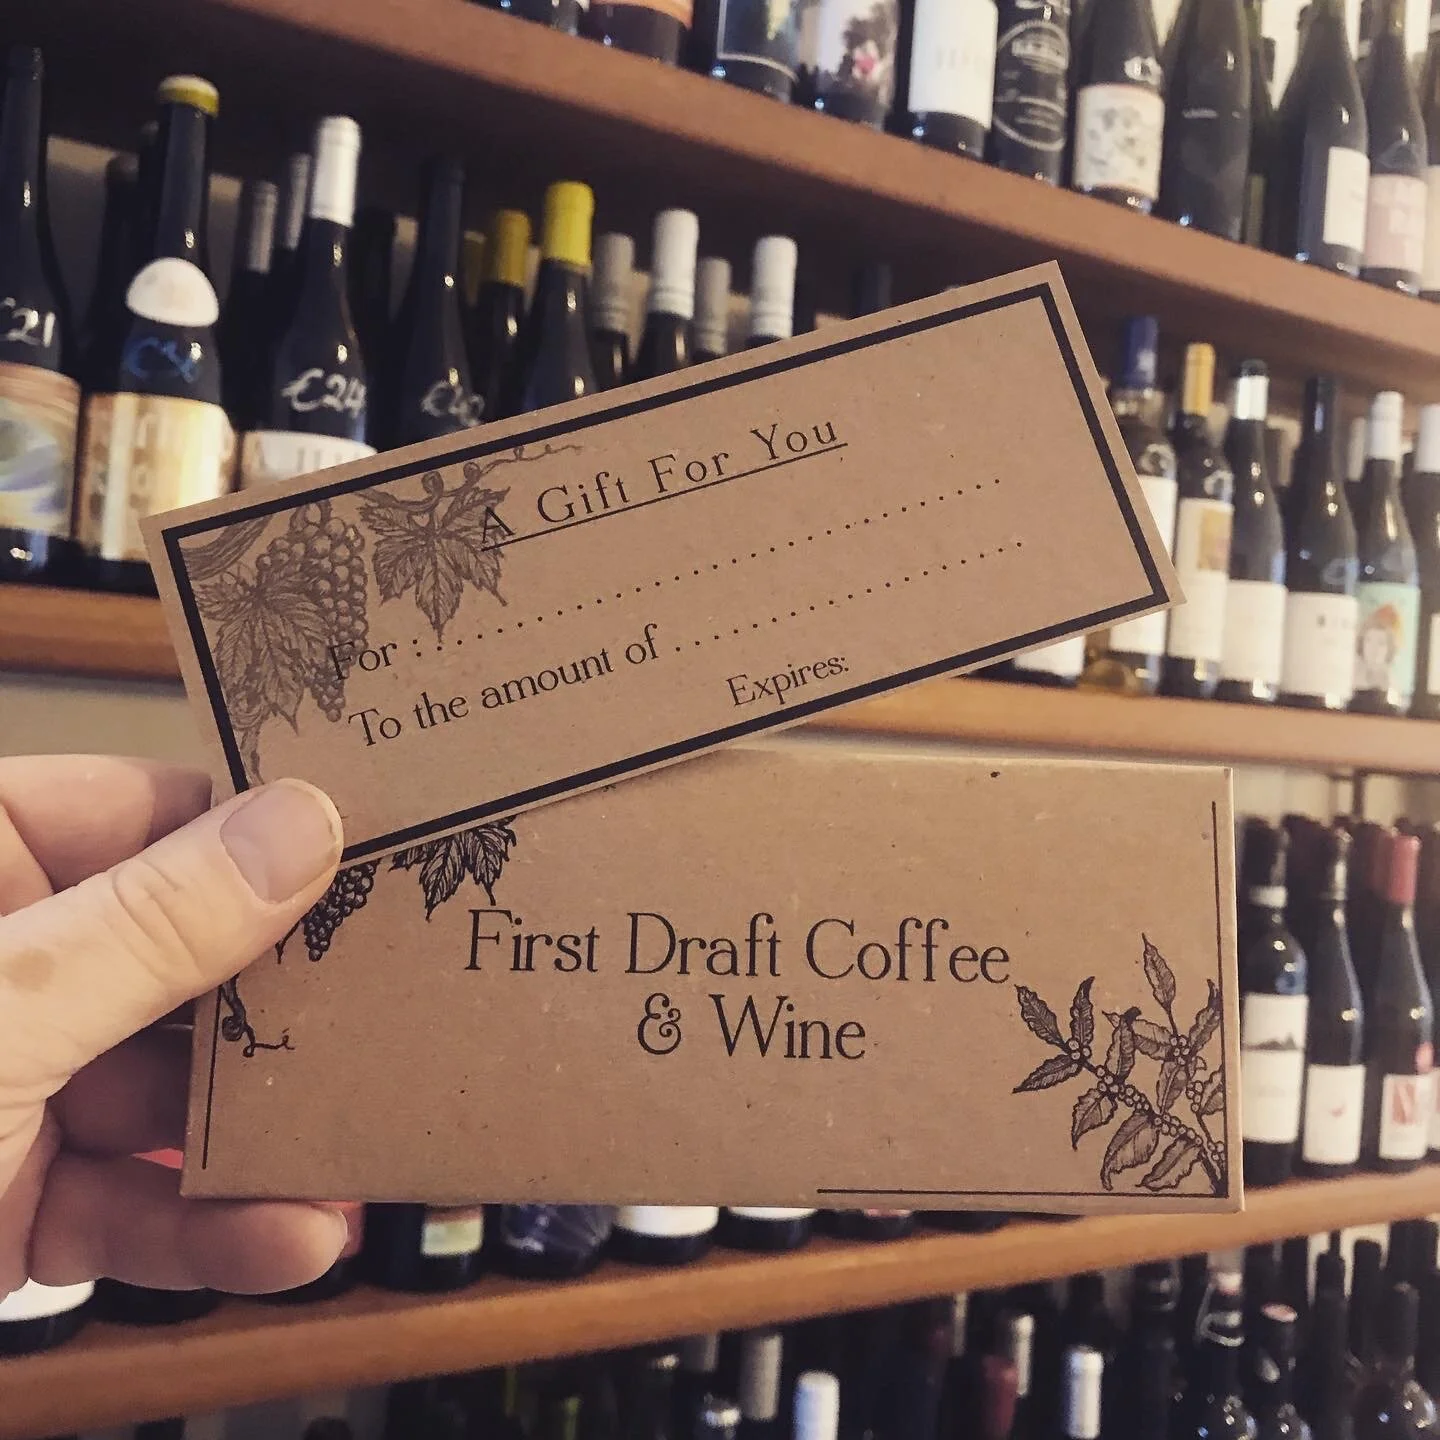 £24
A Gift For You
For :..............................................
To the amount of ...........................
Expires:
First Draft Coffee
& Wine